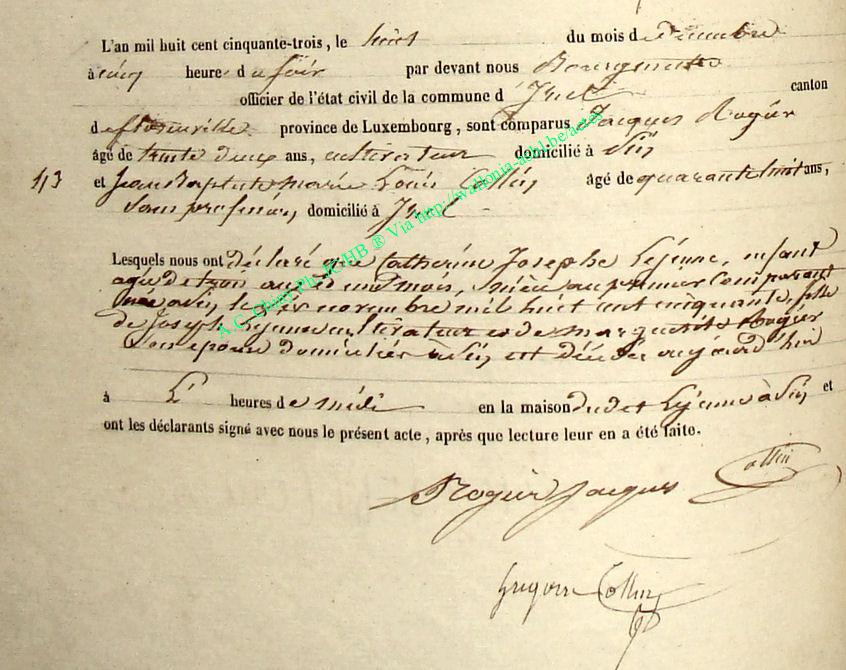 L'an mil huit cent cinquante-trois, le huit du mois de Décembre
à cinq heures du soir par devant nous Bourgmestre
officier de l'état civil de la commune d'Izel canton
de florenville province de Luxembourg, sont comparus Jacques Rogier
âgé de trente deux ans, cultivateur domicilié à
113 et Jean Baptiste marie Louis Collin âgé de quarante huit ans,
Sans profession, domicilié à Izel
Lesquels nous ont déclaré que Catherine Josephe Lejeune, enfant
agée de trois ans et un mois, nièce au premier Comparant
née le novembre mil huit cent cinquante, fille
de Joseph Lejeune cultivateur et de marguerite Rogier
son epouse domiciliés à est décédée aujourd'hui
à heures de midi en la maison dudit Lejeune à et
ont les déclarants signé avec nous le présent acte, après que lecture leur en a été faite.
Rogier Jacques Collin
Collin
A.G. ® Via http://wallonia-asbl.be/actes